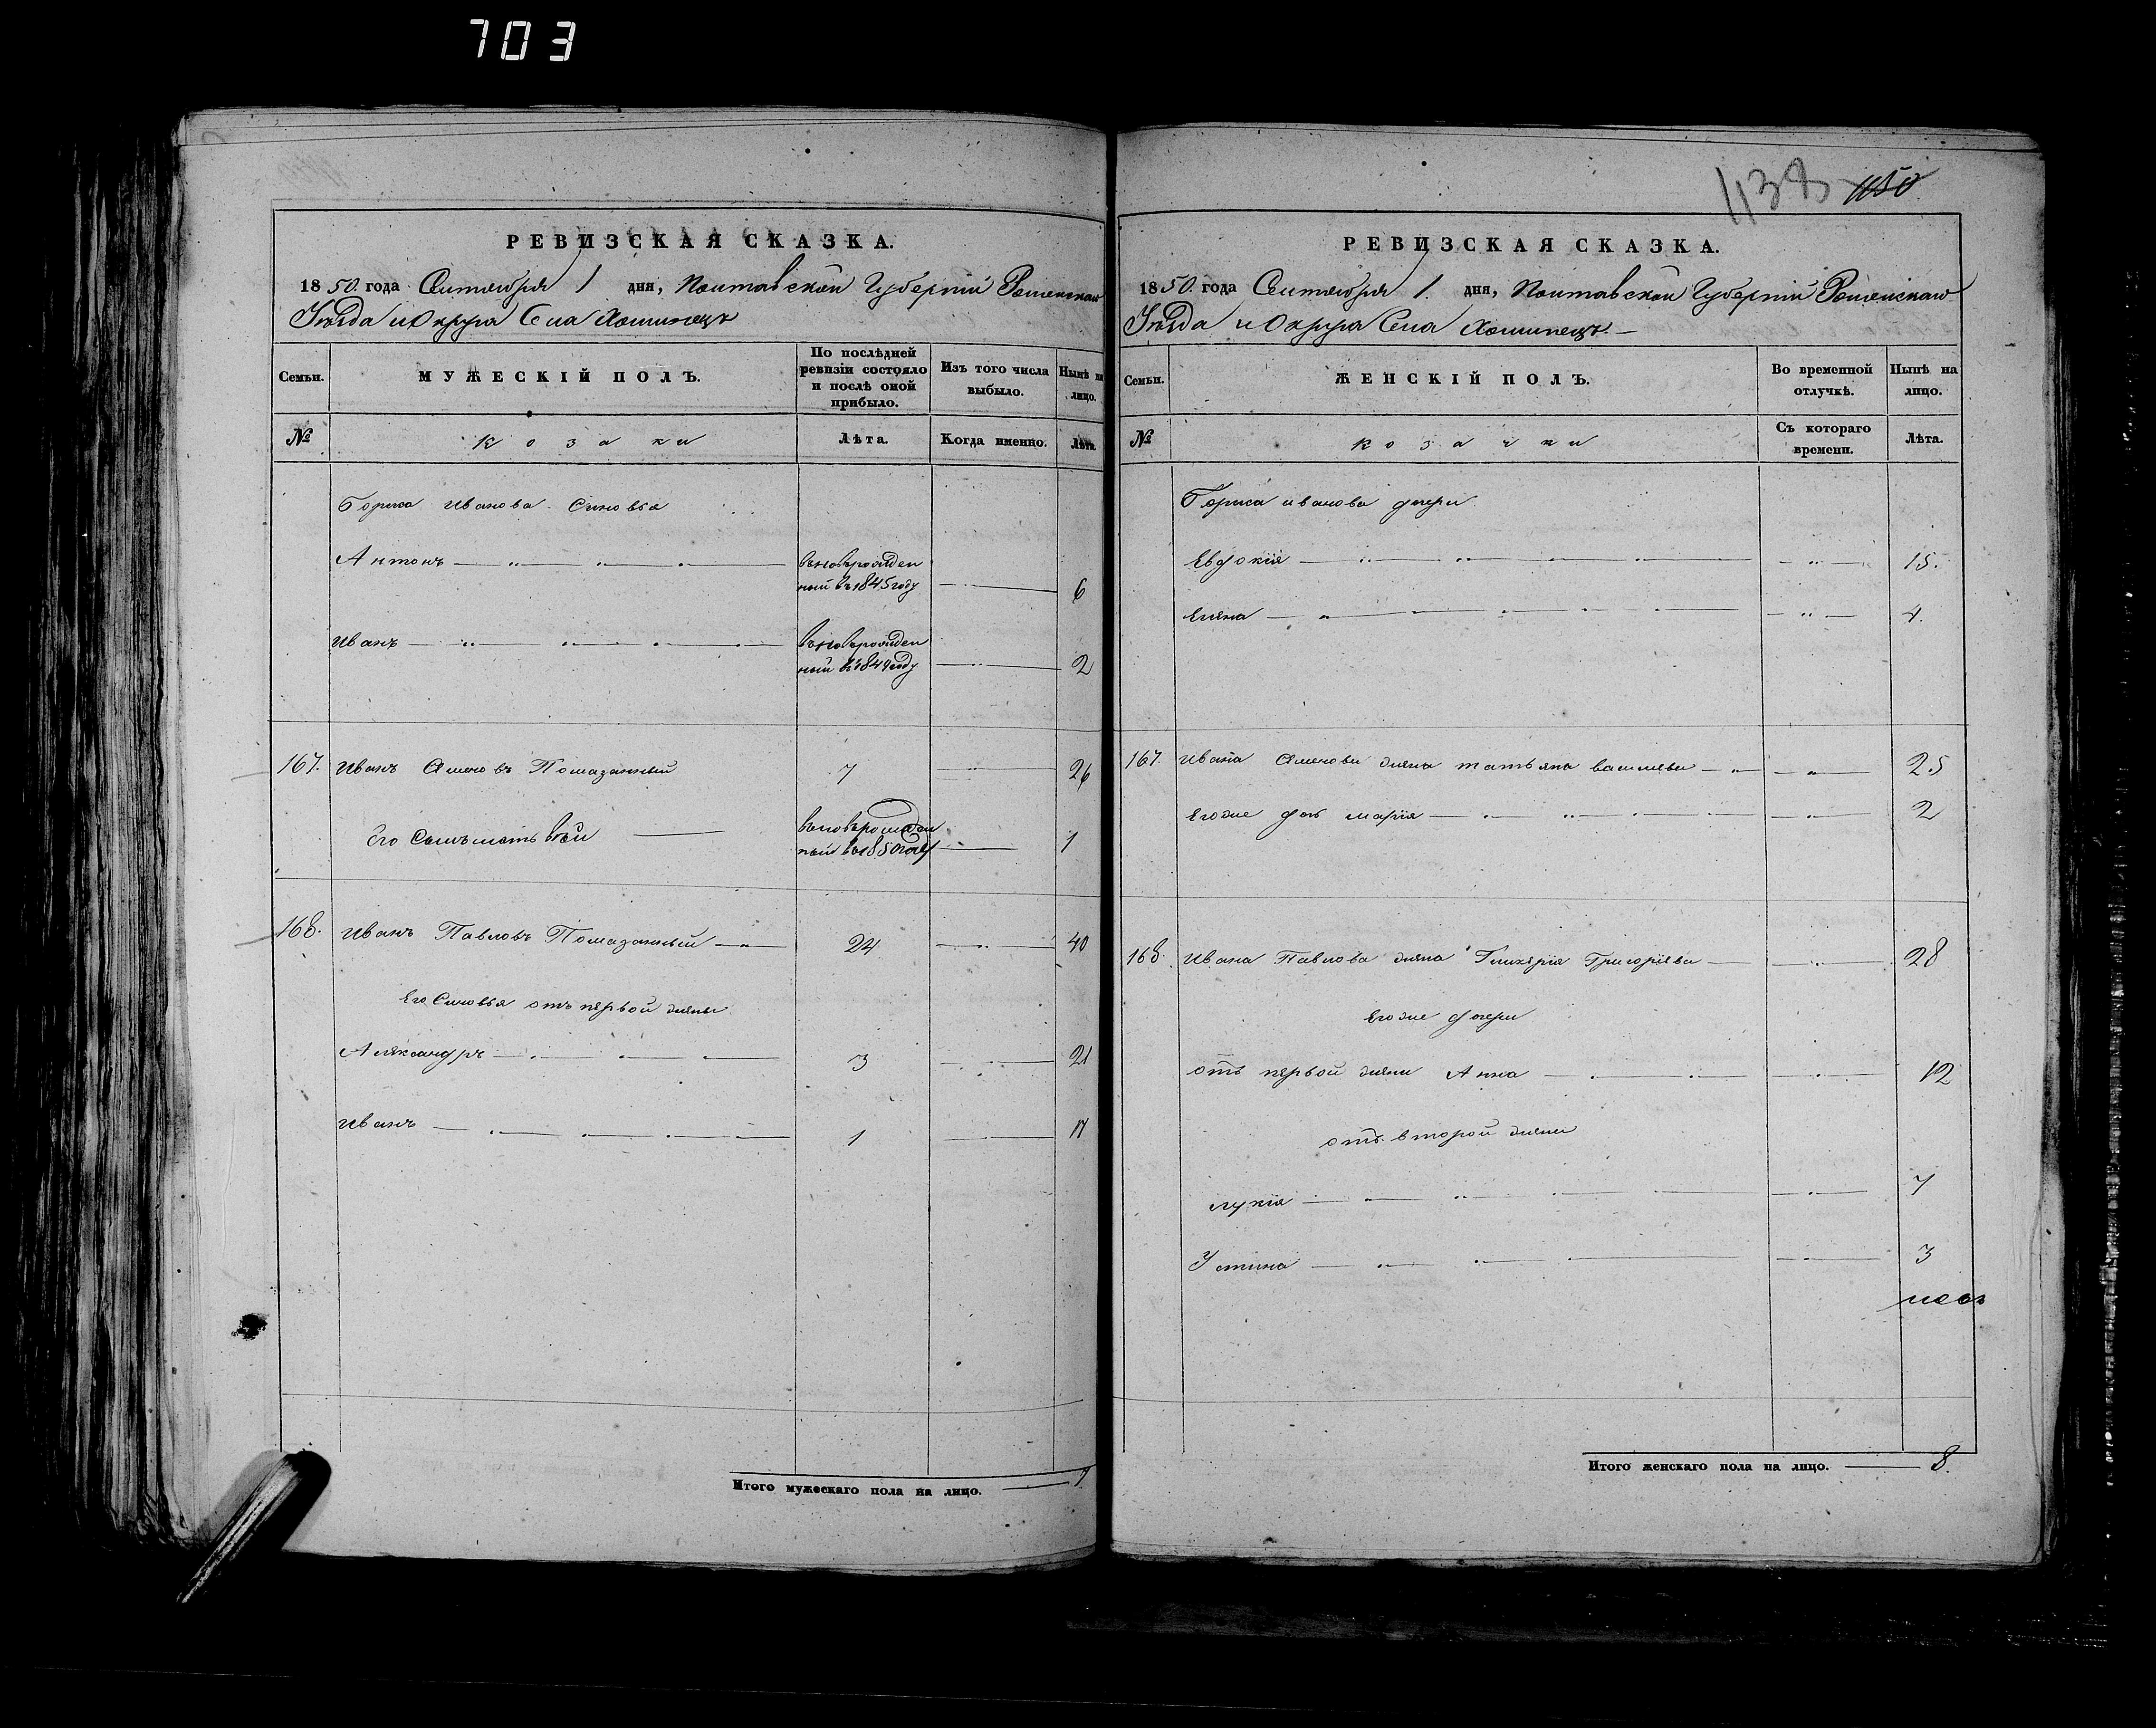 703
1138 1150
РЕВИЗСКАЯ СКАЗКА.
1850. года Сентября 1 дня, Полтавской Губерніи Роменскаго
Уѣзда и Округа Села Хоминецъ
Семьи. МУЖЕСКІЙ ПОЛЪ. По послѣдней ревизіи состояло и послѣ оной прибыло. Изъ того числа выбыло. Нынѣ на лицо.
№ Козаки Лѣта. Когда именно. Лѣта.
Бориса Иванова Синовья
Антонъ вьновьрожден
ный въ 1845 году 6
Иванъ вьновьрожден
ный въ 1849 году 2
167. Иванъ Помазанный 7 26
Его Сынъ вьноврожден
ный въ 1850 году 1
168. Иванъ Павловъ Помазанный 24 40
Его Синовья отъ первой жены
Александръ 3 21
Иванъ 1 17
Итого мужескаго пола на лицо. 7
РЕВИЗСКАЯ СКАЗКА.
1850. года Сентября 1. дня, Полтавской Губерніи Роменскаго
Уѣзда и Округа Села Хоминецъ.
Семьи. ЖЕНСКІЙ ПОЛЪ. Во временной отлучкѣ. Нынѣ на лицо.
№ Козачки Съ котораго времени. Лѣта.
Бориса иванова дочери
Евдокія 15.
Елена 4.
167. Ивана жена татьяна васильева 25
Егоже дочь марія 2
168. Ивана Павлова жена Гликерія Григоріева 28
Егоже дочери
отъ первой жены Анна 12
отъ второй жены
лукія 7
Устина 3
Итого женскаго пола на лицо. 8.